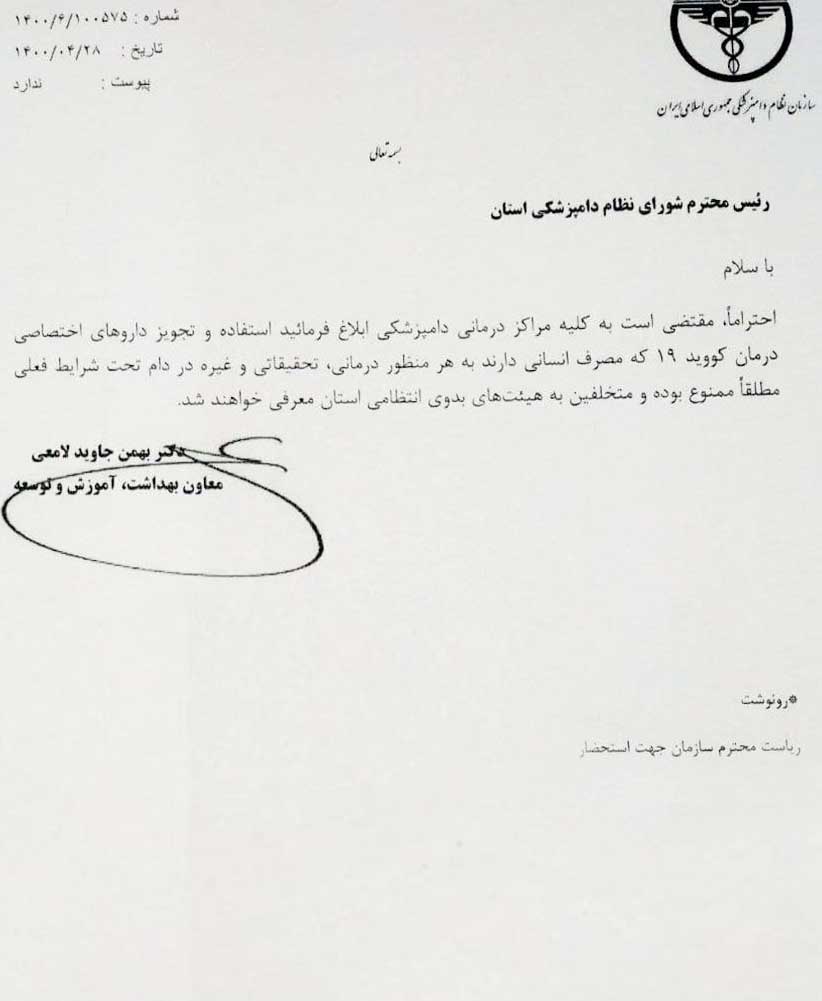 شماره : ۱۴۰۰/۶/۱۰۰۵۷۵
تاریخ : ۱۴۰۰/۰۴/۲۸
پیوست : ندارد
سازمان نظام دامپزشکی جمهوری اسلامی ایران
بسمه تعالی
رئیس محترم شورای نظام دامپزشکی استان
با سلام
احتراماً، مقتضی است به کلیه مراکز درمانی دامپزشکی ابلاغ فرمائید استفاده و تجویز داروهای اختصاصی
درمان کووید ۱۹ که مصرف انسانی دارند به هر منظور درمانی، تحقیقاتی و غیره در دام تحت شرایط فعلی
مطلقاً ممنوع بوده و متخلفین به هیئت‌های بدوی انتظامی استان معرفی خواهند شد.
دکتر بهمن جاوید لامعی
معاون بهداشت، آموزش و توسعه
*رونوشت
ریاست محترم سازمان جهت استحضار